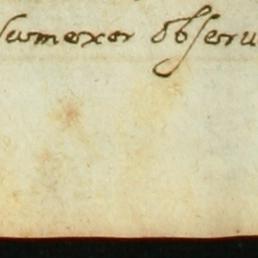 sumexer obseru